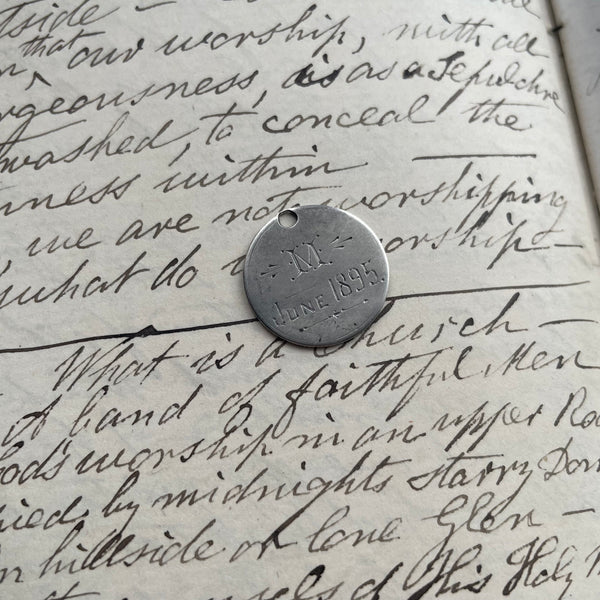 tside – one
that our worship, with all
rgeousness, is as a Sepulchre
washed, to conceal the
ness within
we are not worshipping
what do orship –
M
JUNE 1895.
What is a Church –
A band of faithful Men
God's worship in an upper Roo
ied by midnights starry Dom
n hillside or lone Glen –
of His Holy